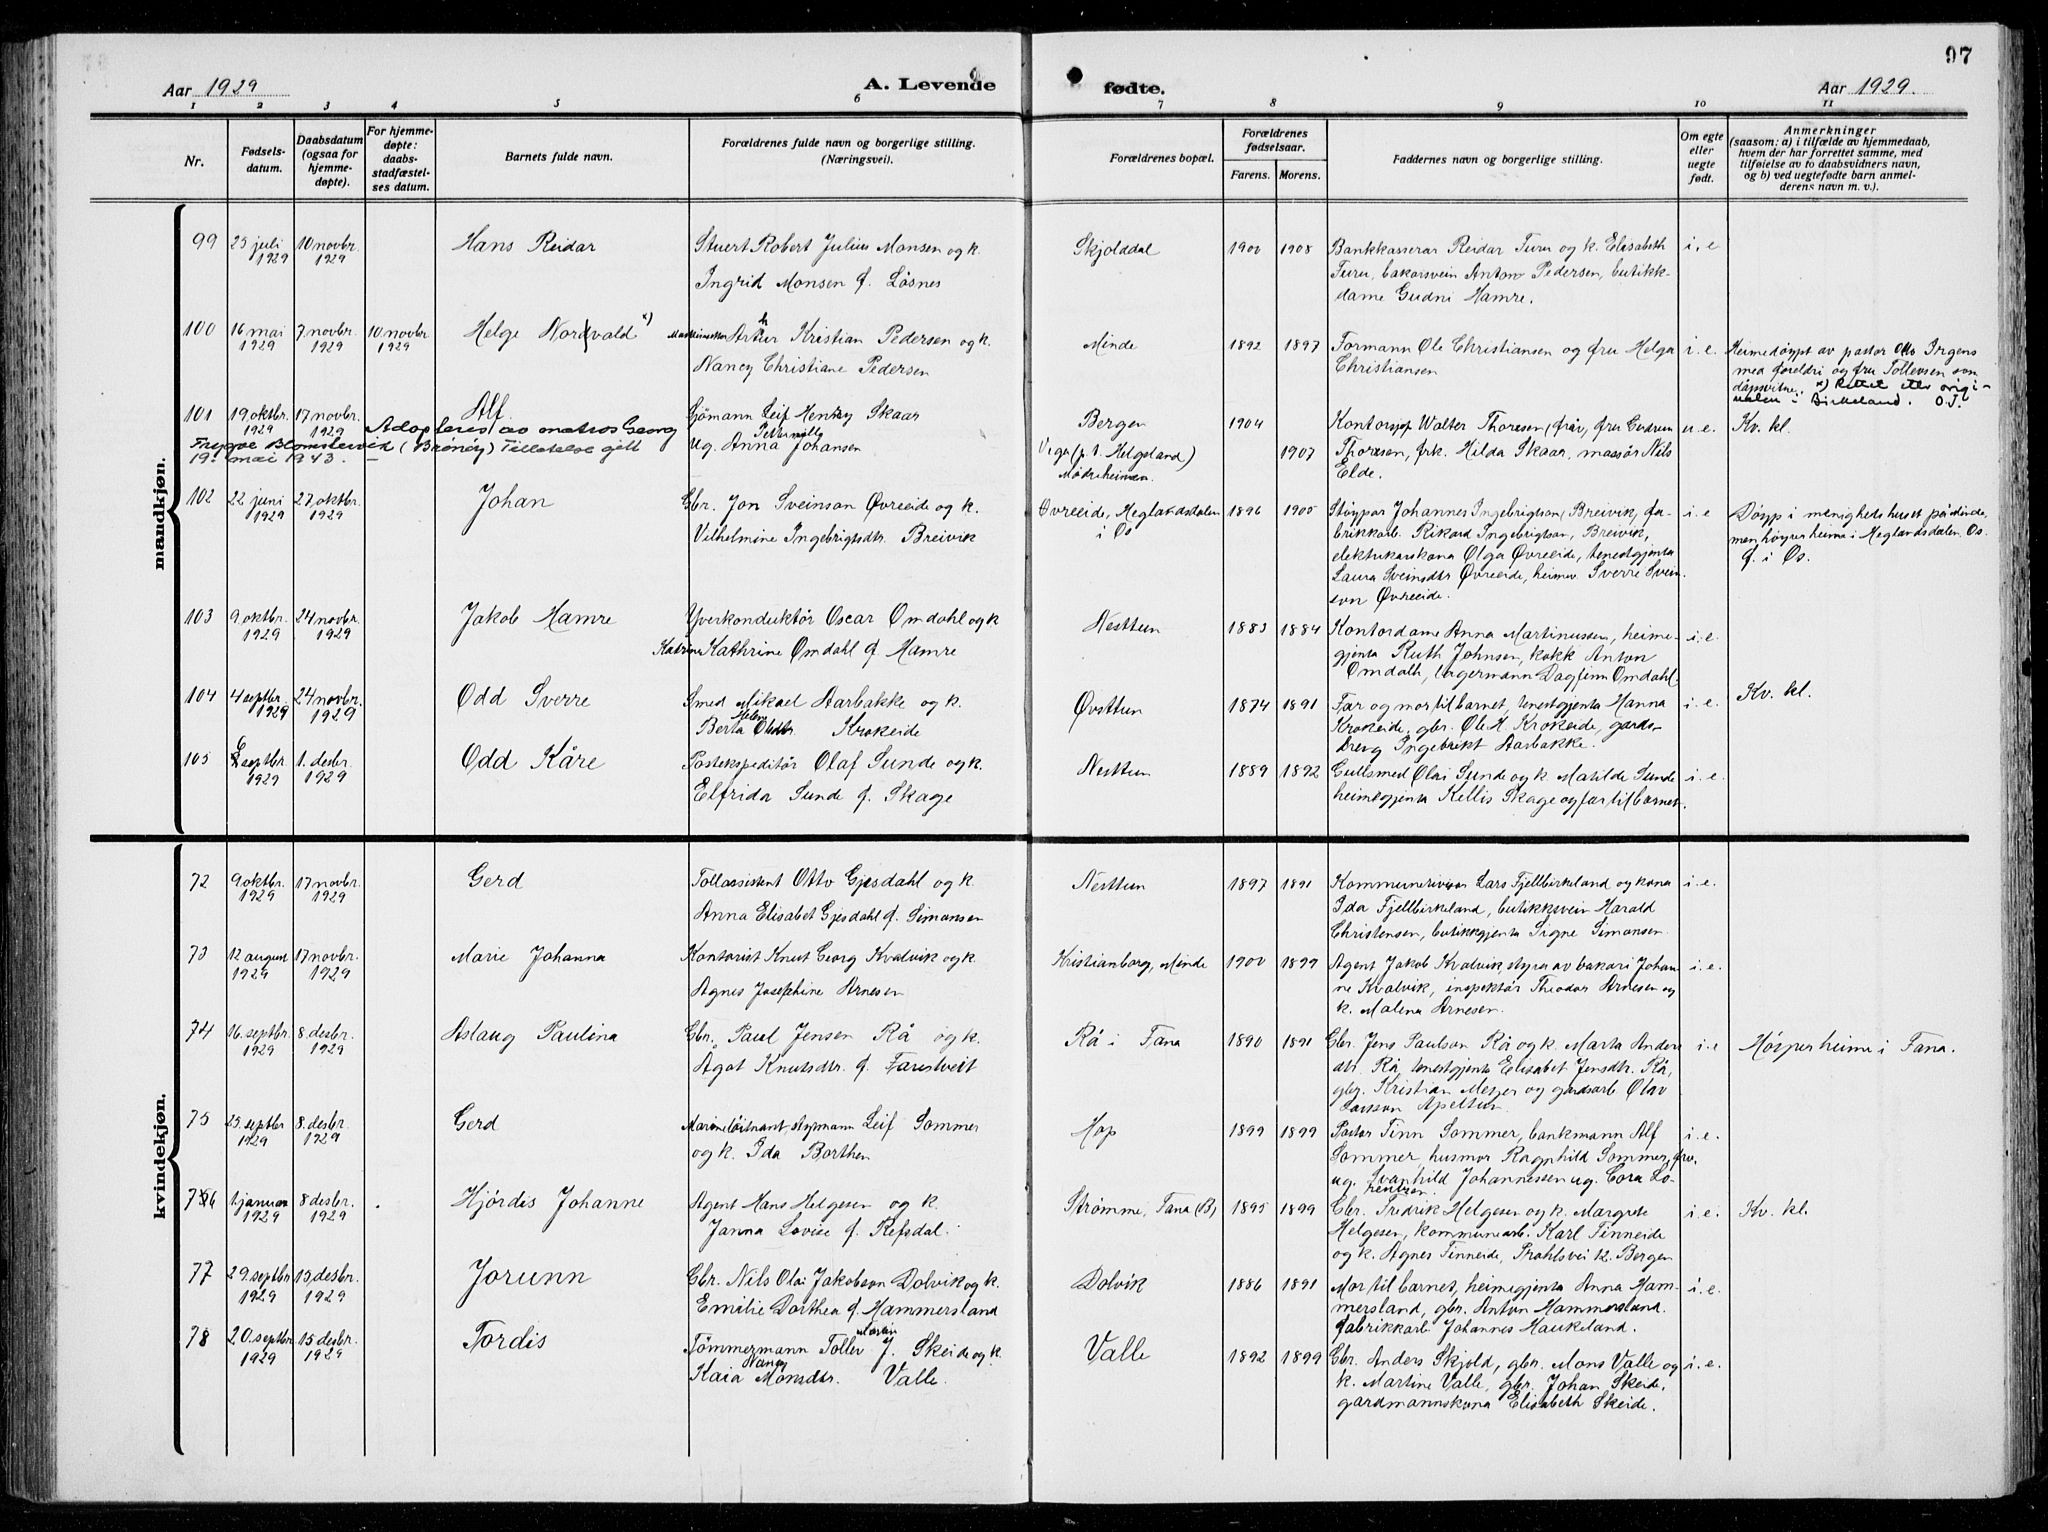 97
Aar 1929
A. Levende
fødte.
Aar 1929.
1 2 3 4 5 6 7 8 9 10 11
Nr.
Fødsels-
datum.
Daabsdatum
(ogsaa for
hjemme-
døpte).
For hjemme-
døpte:
daabs-
stadfæstel-
ses datum.
Barnets fulde navn.
Forældrenes fulde navn og borgerlige stilling.
(Næringsvei).
Forældrenes bopæl.
Forældrenes
fødselsaar.
Farens. Morens.
Faddernes navn og borgerlige stilling.
Om egte
eller
uegte
født.
Anmerkninger
(saasom: a) i tilfælde av hjemmedaab,
hvem der har forrettet samme, med
tilføielse av to daabsvidners navn,
og b) ved uegtefødte barn anmel-
derens navn m. v.).
mandkjøn.
99 25 juli 1929 10 novbr. 1929 Hans Reidar
Stuert Robert Julius Monsen og k.
Ingrid Monsen f. Løsnes
Skjolddal 1900 1908
Bankkasserar Reidar Furu og k. Elisabeth
Furu, bakarsvein Anton Pedersen, butikk-
dame Gudni Hamre.
i. e
100 16 mai 1929 7. novbr. 1929 10 novbr. 1929 Helge Nordvald x)
Artur Kristian Pedersen og k.
Nancy Christiane Pedersen
Minde 1892 1897
Formann Ole Christiansen og fru Helga
Christiansen
i. e.
Heimedøypt av pastor Otto Irgens
med foreldri og fru Tollevsen som
dåpsvitne. x) Rettet etter origi-
nalen i Birkeland. O.J.
101 19. oktbr. 1929 17 novbr. 1929 Alf.
Adopteres av matros Georg
Trygve Blomstervid (Brønöy) Tillatelse gitt
19. mai 1943.
Sjømann Leif Henry Skaar
ug. Anna Petternille Johansen
Bergen
Vega (p. t. Helgeland)
Mødreheimen
1904 1907
Kontorsjef Walter Thoresen, fru Gudrun
Thoresen, frk. Hilda Skaar, massør Nils
Elde.
u. e. Kv. kl.
102 22 juni 1929 27. oktbr. 1929 Johan
Gbr. Jon Sveinson Øvreeide og k.
Vilhelmine Ingebrigtsdtr. Breivik
Øvreeide, Heglandsdalen
i Os
1896 1905
Støypar Johannes Ingebrigtson, Breivik, fa-
brikkarb. Rikard Ingebrigtson, Breivik,
elektrikarkona Olga Øvreeide, tenestgjenta
Laura Sveinsdtr Øvreeide, heimev. Sverre Svein-
son Øvreeide.
i. e
Døypt i menighetshuset på Minde,
men høyrer heime i Heglandsdalen Os.
f. i Os.
103 9. oktbr. 1929 24 novbr. 1929 Jakob Hamre
Yverkonduktør Oscar Omdahl og k
Katrine Kathrine Omdahl f. Hamre
Nesttun 1883 1884
Kontordame Anna Martinussen, heime-
gjenta Ruth Johnsen, kokk Anton
Omdahl, lagermann Dagfinn Omdahl.
i. e.
104 4 septbr. 1929 24 novbr. 1929 Odd Sverre
Smed Mikael Aarbakke og k.
Berta Helene Olsdtr. Krokeide
Øvsttun 1874 1891
Far og mor til barnet, tenestgjenta Hanna
Krokeide, gbr. Ole H. Krokeide, gards-
dreng Ingebrikt Aarbakke.
i. e. Kv. kl.
105 septbr. 1929 1. desbr. 1929 Odd Kåre
Postekspeditør Olaf Sunde og k.
Elfrida Sunde f. Skage
Nesttun 1889 1892
Gullsmed Olai Sunde og k. Matilde Sunde
heimegjenta Kellis Skage og far til barnet.
i. e.
kvindekjøn.
72 9. oktbr. 1929 17 novbr. 1929 Gerd
Tollassistent Otto Gjesdahl og k.
Anna Elisabet Gjesdahl f. Simonsen
Nesttun 1897 1891
Kommunerivisor Lars Fjellbirkeland og kona
Ida Fjellbirkeland, butikksvein Harald
Christensen, butikkgjenta Signe Simonsen.
i. e.
73 12 august 1929 17 novbr. 1929 Marie Johanna
Kontorist Knut Georg Kvalvik og k.
Agnes Josephine Arnesen
Kristianborg, Minde 1900 1899
Agent Jakob Kvalvik, styrer av bakeri Johan-
ne Kvalvik, inspektør Theodor Arnesen og
k. Malena Arnesen.
i. e.
74 16. septbr. 1929 8. desbr. 1929 Aslaug Paulina
Gbr. Paul Jensen Rå og k.
Agot Knutsdtr. f. Farestveit
Rå i Fana 1890 1891
Gbr. Jens Paulson Rå og k. Marta Anders
dtr. Rå, tenestgjenta Elisabet Jensdtr. Rå,
gbr. Kristian Mejer og gardsarb. Olav
Larsson Apeltun
i. e Høyrer heime i Fana.
75 25. septbr 1929 8. desbr. 1929 Gerd
Marineløitnant, styrmann Leif Sommer
og k. Ida Borthen
Hop 1899 1899
Pastor Finn Sommer, bankmann Alf
Sommer, husmor Ragnhild Sommer, frk.
ug. Svanhild Johannessen ug. Cora Lo-
rentzen.
i. e.
76 1 januar 1929 8 desbr. 1929 Hjørdis Johanne
Agent Hans Helgesen og k.
Janna Lovise f. Refsdal.
Strømme, Fana (B) 1895 1899
Gbr. Fredrik Helgesen og k. Margrete
Helgesen, kommunearb. Karl Finneide
og k. Agnes Finneide, Prahlsvei 12. Bergen
i. e. Kv. kl.
77 29. septbr 1929 15 desbr. 1929 Jorunn
Gbr. Nils Olai Jakobson Dolvik og k.
Emilie Dorthea f. Hammersland
Dolvik 1886 1891
Mor til barnet, heimegjenta Anna Ham-
mersland, gbr. Anton Hammersland.
fabrikkarb. Johannes Haukeland.
i. e.
78 20. septbr 1929 15 desbr. 1929 Tordis
Tømmermann Tollev Martin J. Skeide og k.
Kaia Nancy Monsdtr. Valle.
Valle 1892 1899
Gbr. Anders Skjold, gbr. Mons Valle og
k. Martine Valle, gbr. Johan Skeide,
gardmannskona Elisabeth Skeide.
i. e.